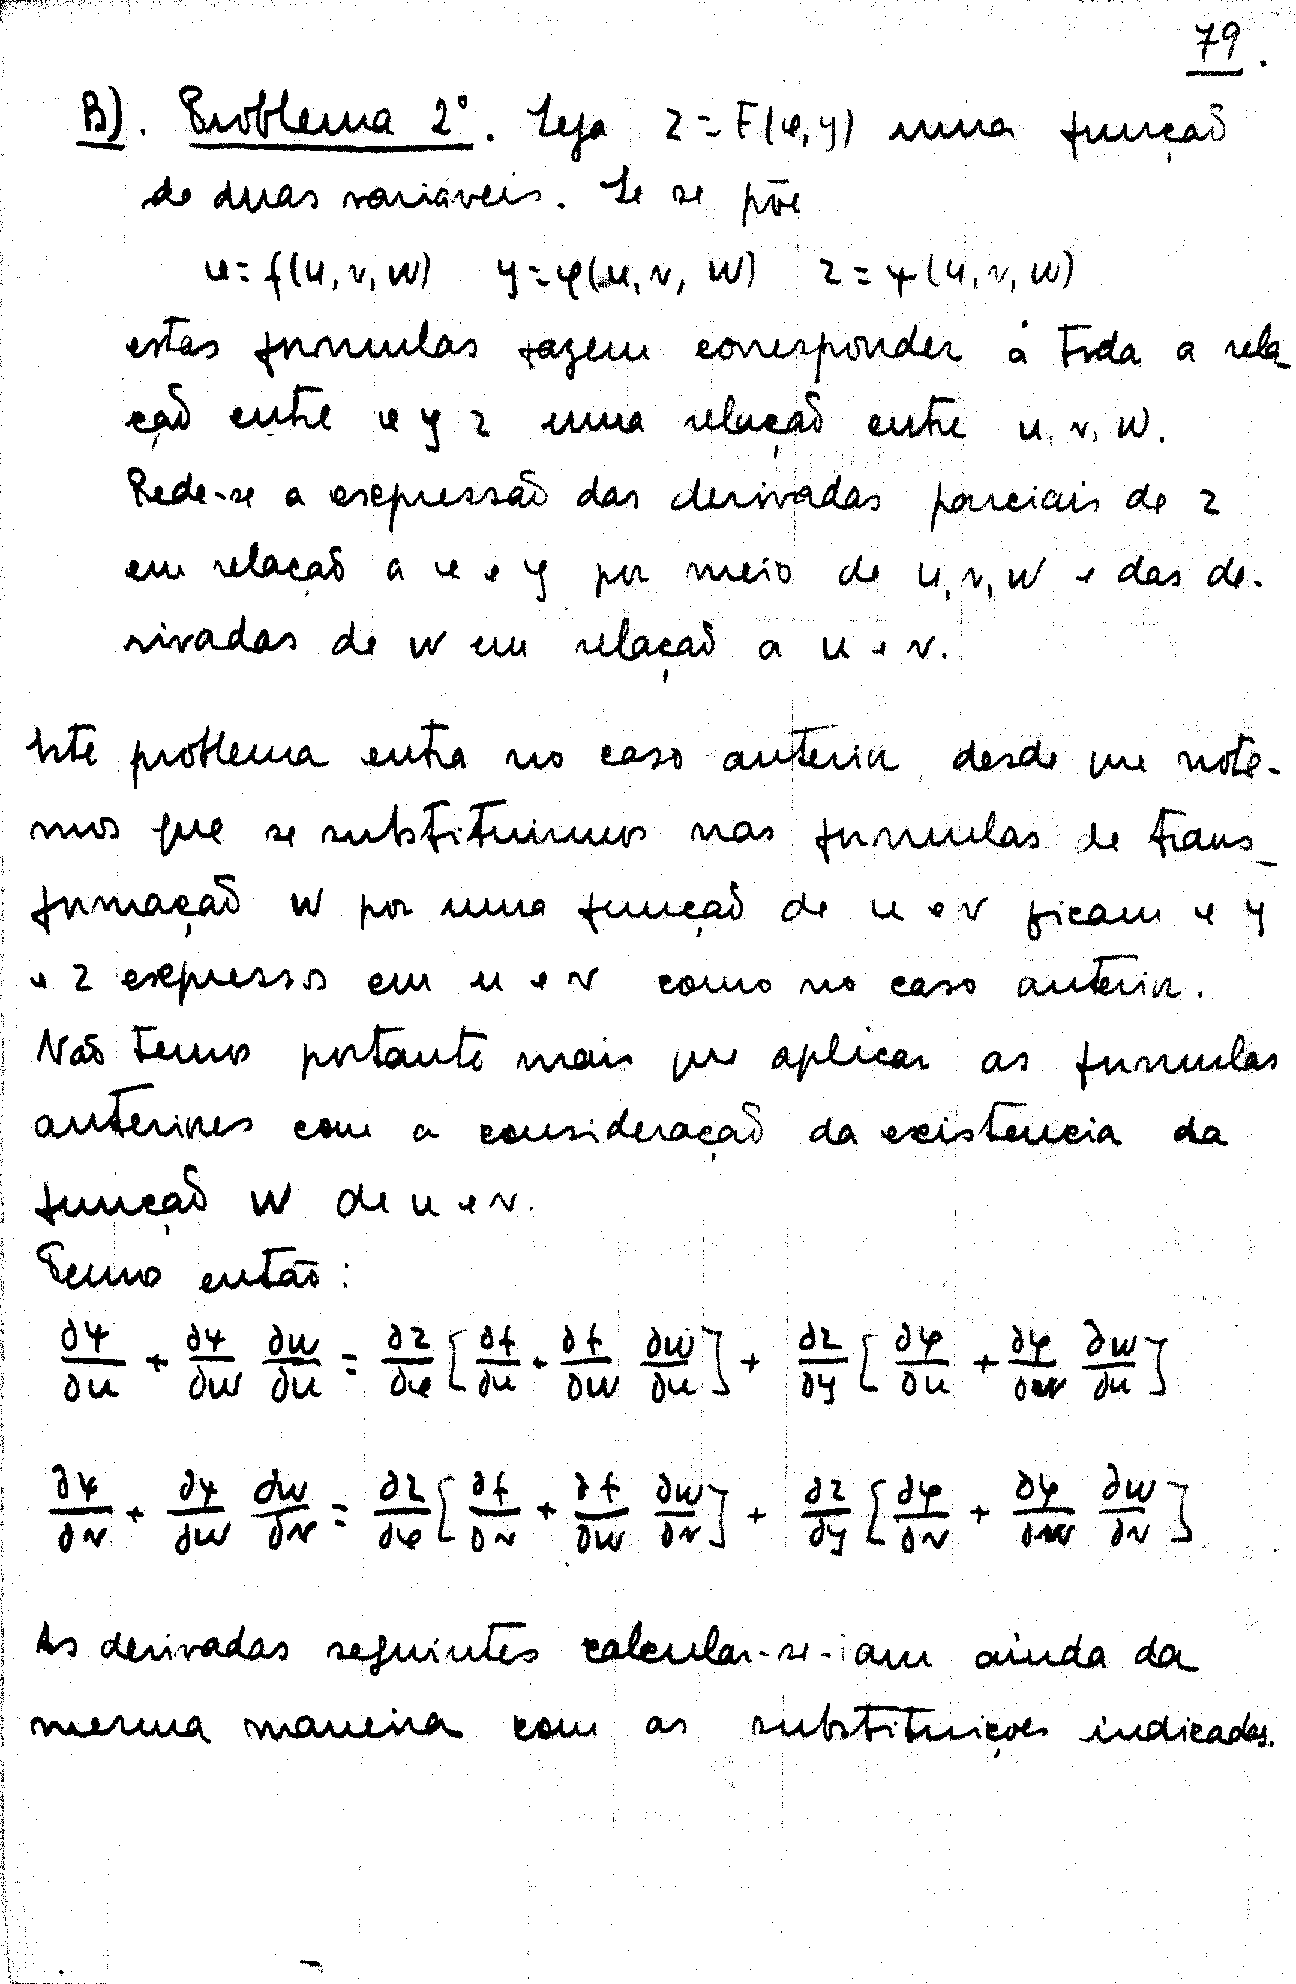 79.
B). Problema 2º. Seja z = F(x, y) uma função
de duas variáveis. Se se põe
x = f(u, v, w)   y = φ(u, v, w)   z = ψ(u, v, w)
estas formulas fazem corresponder á toda a rela_
ção entre x y z uma relação entre u, v, w.
Pede-se a expressão das derivadas parciais de z
em relação a x e y por meio de u, v, w e das de-
rivadas de w em relação a u e v.
Este problema entra no caso anterior, desde que note-
mos que se substituirmos nas formulas de trans_
formação w por uma função de u e v ficam x y
e z expressos em u e v como no caso anterior.
Não temos portanto mais que aplicar as formulas
anteriores com a consideração da existencia da
função w de u e v.
Temos então:
∂ψ/∂u + ∂ψ/∂w ∂w/∂u = ∂z/∂x [∂f/∂u + ∂f/∂w ∂w/∂u] + ∂z/∂y [∂φ/∂u + ∂φ/∂w ∂w/∂u]
∂ψ/∂v + ∂ψ/∂w ∂w/∂v = ∂z/∂x [∂f/∂v + ∂f/∂w ∂w/∂v] + ∂z/∂y [∂φ/∂v + ∂φ/∂w ∂w/∂v]
As derivadas seguintes calcular-se-iam ainda da
mesma maneira com as substituições indicadas.